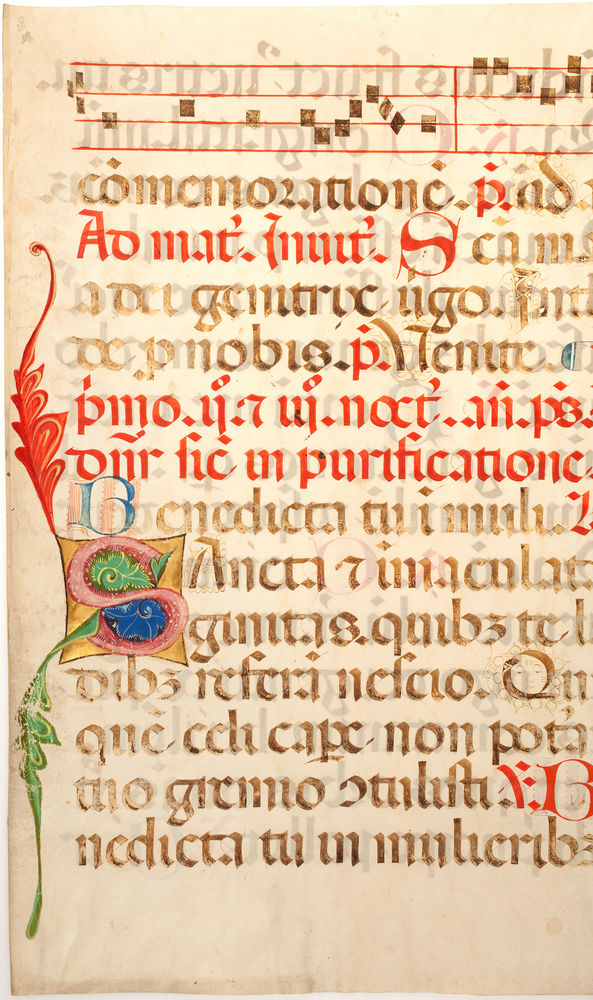 cōmemoratione. p̄. ad
Ad mat̄. Inuit̄. Scā m
a dei genitrix uˀgo. int
de p nobis. p̄. Venite.
pˀmo. ijº ⁊ iijº. noct̄. añ. ps̄.
dn̄r sic̄ in purificatione.
Benedicta tu ī muli.
SAncta ⁊ imaculat
ginitas. quibꝫ te l
dibꝫ referā nescio. Qui
quē celi capꝑe non potˀa
tuo gremio ꝯtulisti. ℣. B
nedicta tu in mulieribꝫ